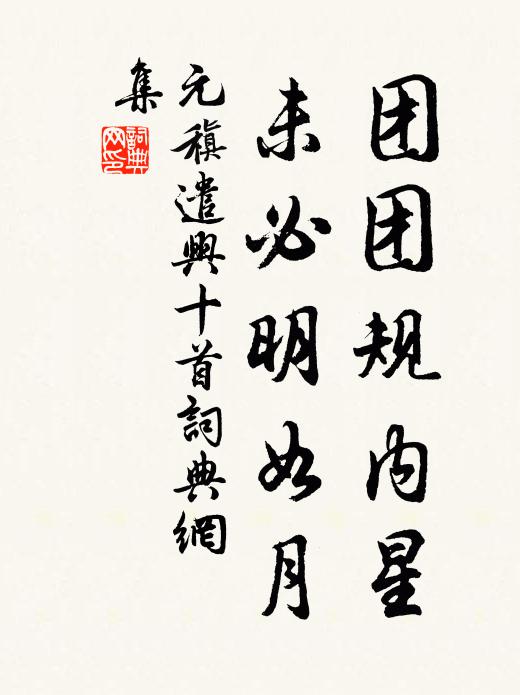 团团规内星
未必明如月
元稹遣興十首詞典網
集
詞典
网印